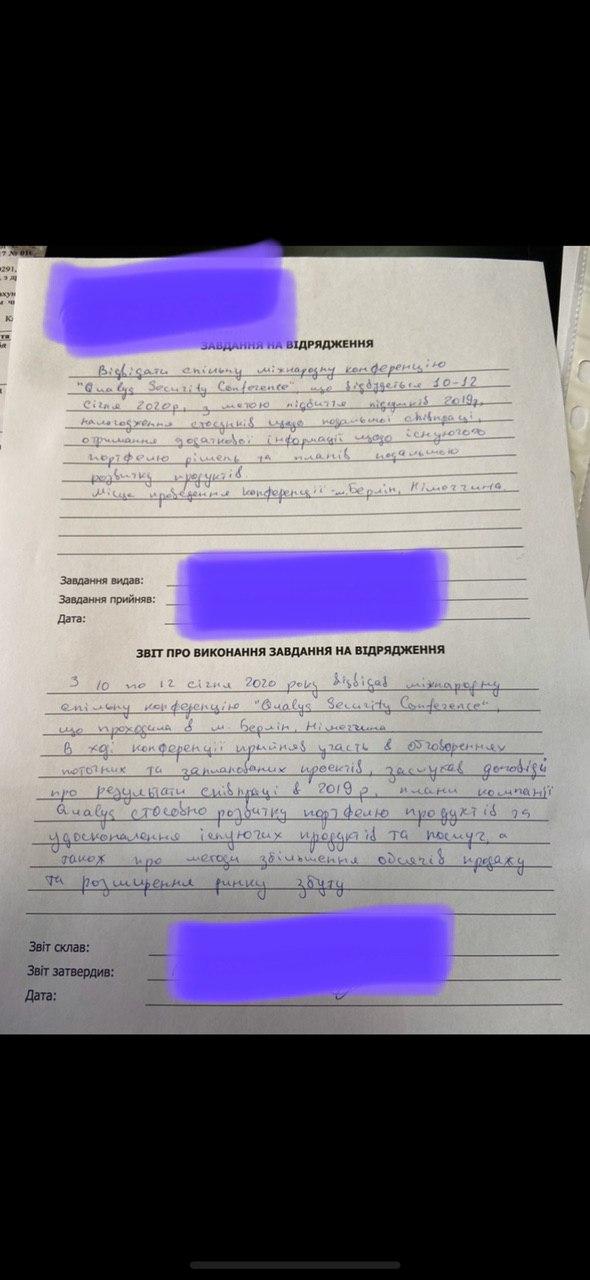 7 № 016
0291,
ЗАВДАННЯ НА ВІДРЯДЖЕННЯ
Відвідати спільну міжнародну конференцію
"Qualys Security Conference", що відбудеться 10-12
січня 2020р, з метою підбиття підсумків 2019р,
налагодження стосунків щодо подальшої співпраці,
отримання додаткової інформації щодо існуючого
портфелю рішень та планів подальшого
розвитку продуктів.
Місце проведення конференції - м. Берлін, Німеччина.
Завдання видав:
Завдання прийняв:
Дата:
ЗВІТ ПРО ВИКОНАННЯ ЗАВДАННЯ НА ВІДРЯДЖЕННЯ
З 10 по 12 січня 2020 року відвідав міжнародну
спільну конференцію "Qualys Security Conference",
що проходила в м. Берлін, Німеччина.
В ході конференції прийняв участь в обговореннях
поточних та запланованих проектів, заслухав доповіді
про результати співпраці в 2019 р, плани компанії
Qualys стосовно розвитку портфелю продуктів та
удосконалення існуючих продуктів та послуг, а
також про методи збільшення обсягів продажу
та розширення ринку збуту
Звіт склав:
Звіт затвердив:
Дата: